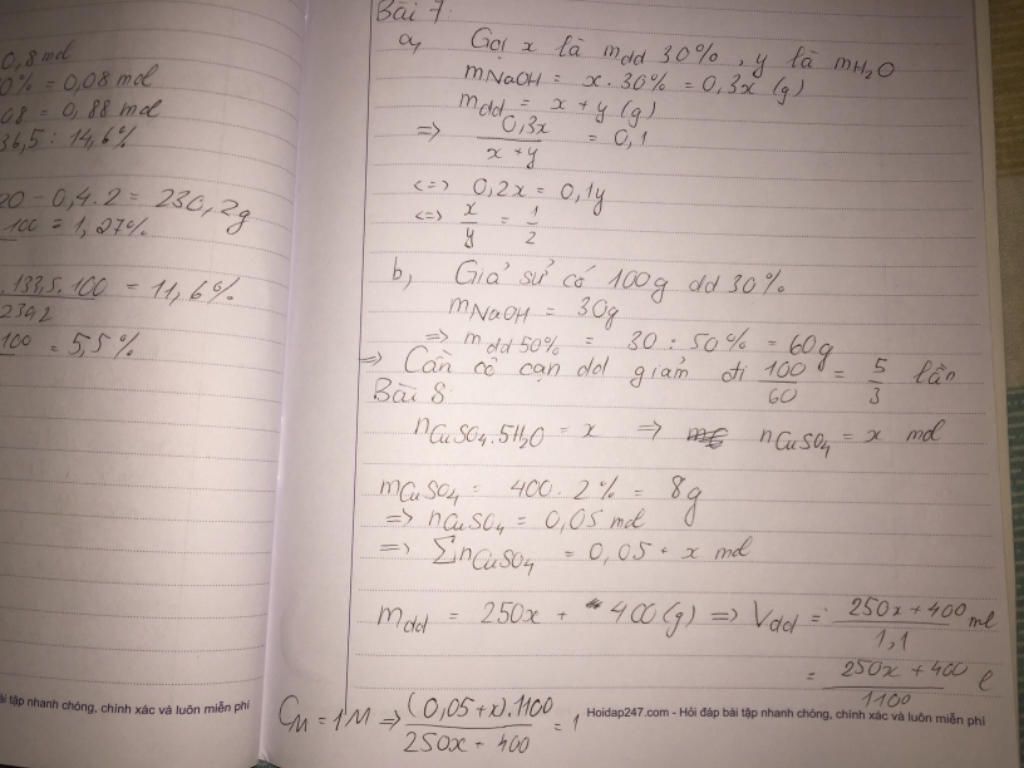 0,8 mol
0% = 0,08 mol
08 = 0,88 mol
36,5 : 14,6%
00 - 0,4.2 = 230,2g
100 = 1,27%
.133,5.100 = 11,6%
2392
100 = 5,5%
ài tập nhanh chóng, chính xác và luôn miễn phí
Bài 7:
a, Gọi x là mdd 30%, y là mH2O
mNaOH = x.30% = 0,3x (g)
mdd = x+y (g)
=> 0,3x / x+y = 0,1
<=> 0,2x = 0,1y
<=> x/y = 1/2
b, Giả sử có 100g dd 30%
mNaOH = 30g
=> mdd 50% = 30 : 50% = 60g
=> Cần cô cạn dd giảm đi 100/60 = 5/3 lần
Bài 8:
nCuSO4.5H2O = x => nCuSO4 = x mol
mCuSO4 = 400.2% = 8g
=> nCuSO4 = 0,05 mol
=> ΣnCuSO4 = 0,05 + x mol
mdd = 250x + 400(g) => Vdd = 250x+400 / 1,1 ml
= 250x+400 / 1100 l
CM = 1M => (0,05+x).1100 / 250x+400 = 1
Hoidap247.com - Hỏi đáp bài tập nhanh chóng, chính xác và luôn miễn phí